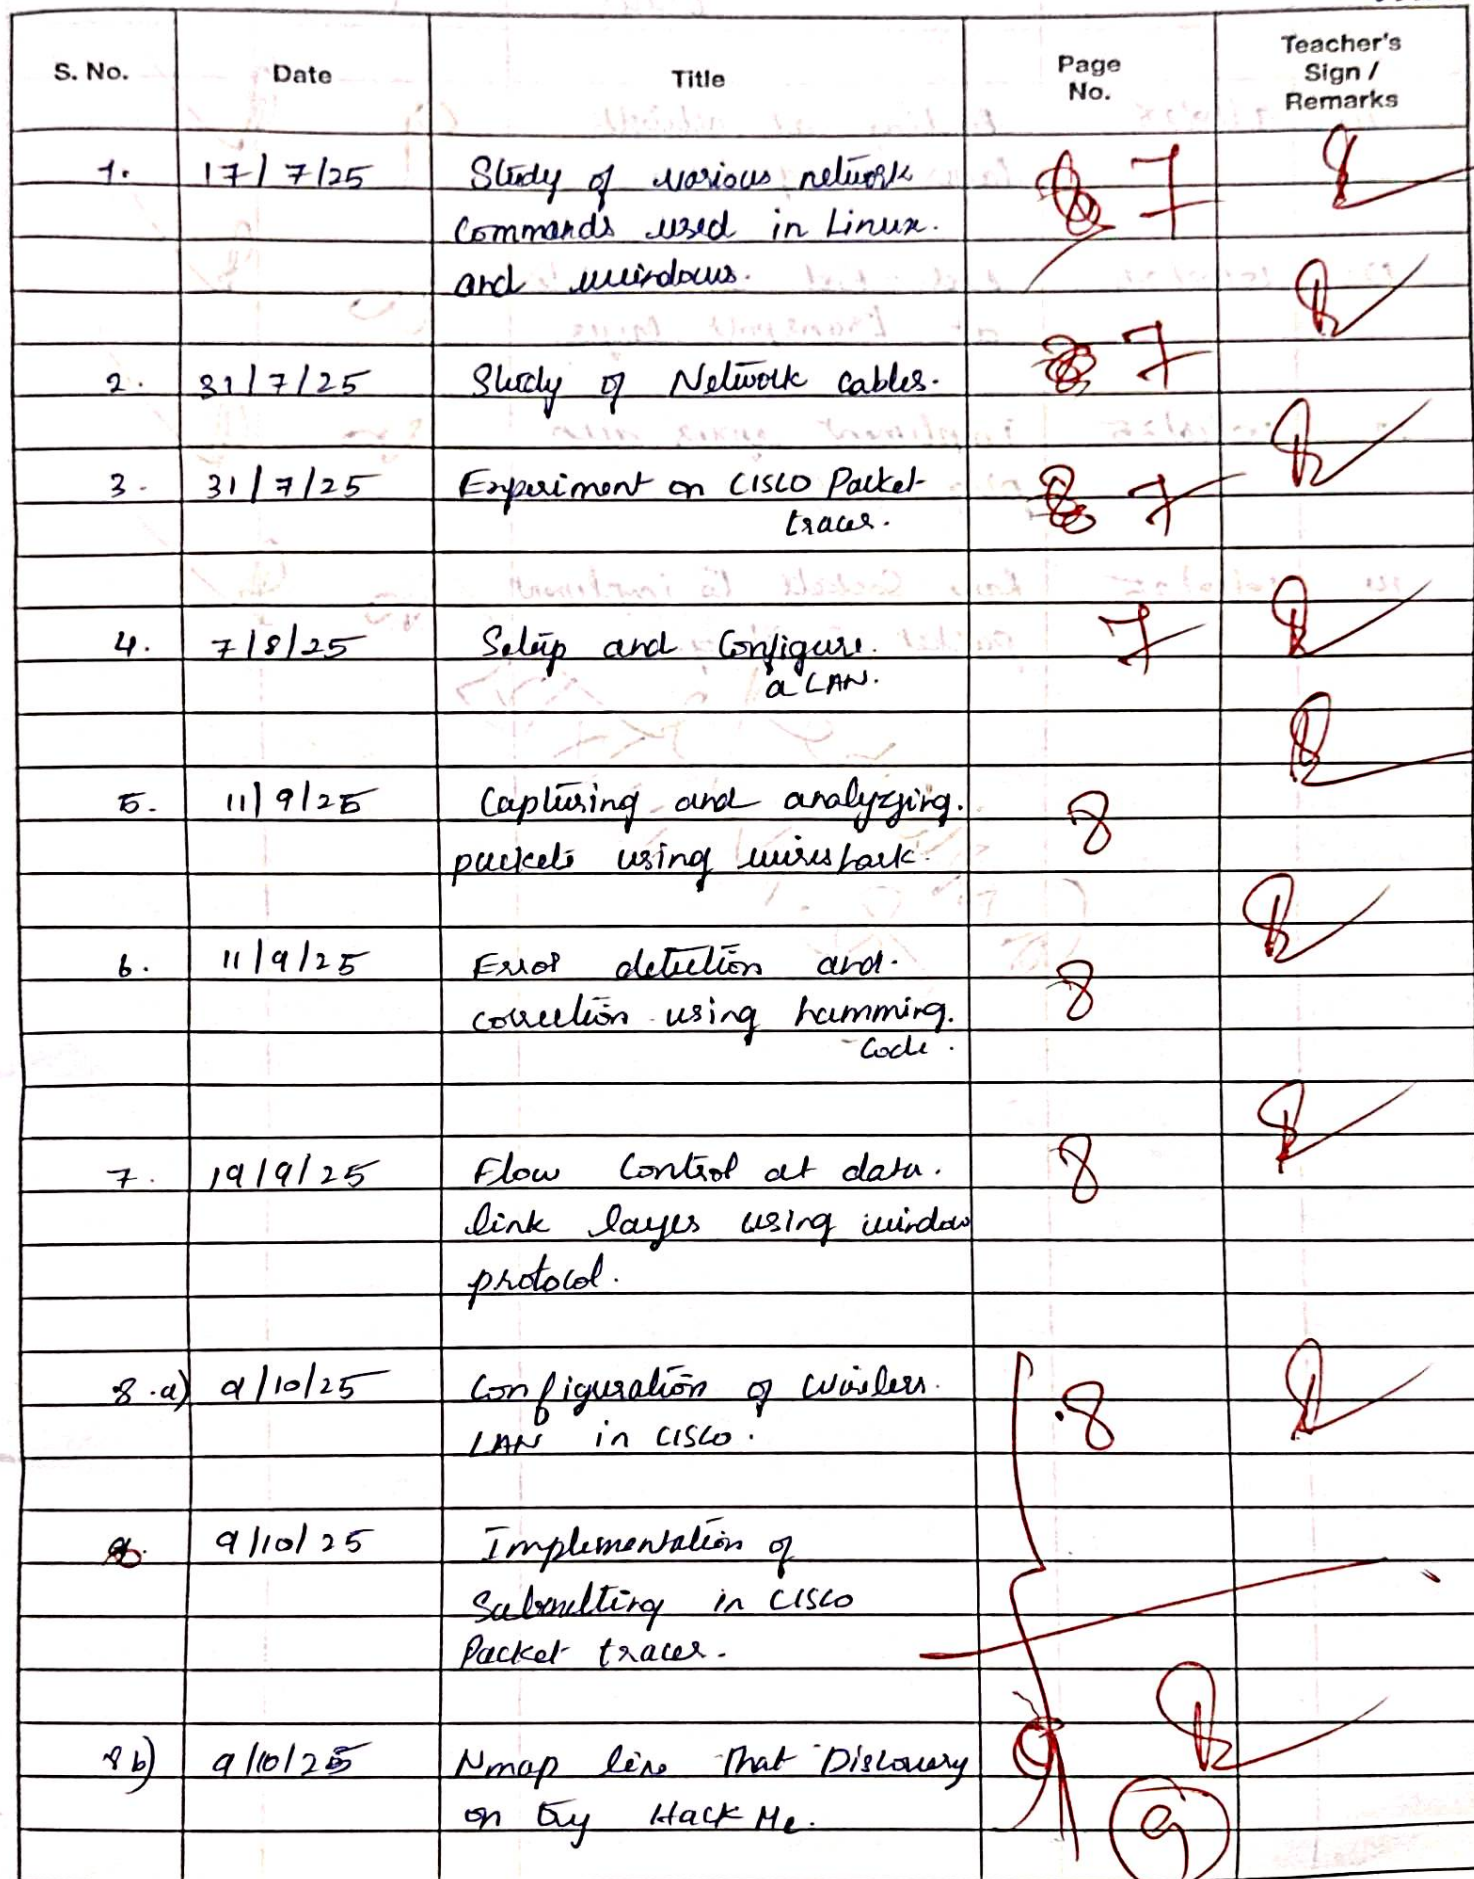 S. No. Date Title Page No. Teacher's Sign / Remarks
1. 17/7/25 Study of various network 7
Commands used in Linux.
and windows.
2. 31/7/25 Study of Network cables. 7
3. 31/7/25 Experiment on CISCO Packet 7
tracer.
4. 7/8/25 Setup and Configure. 7
a LAN.
5. 11/9/25 Capturing and analyzging. 8
packets using wireshark.
6. 11/9/25 Error detection and. 8
correction using hamming.
Code.
7. 19/9/25 Flow Control at data. 8
link layer using window
protocol.
8.a) 9/10/25 Configuration of wireless. 8
LAN in CISCO.
9/10/25 Implementation of
Subnetting in CISCO
Packet tracer.
8b) 9/10/25 Nmap live That Discovery
on try Hack Me. 9